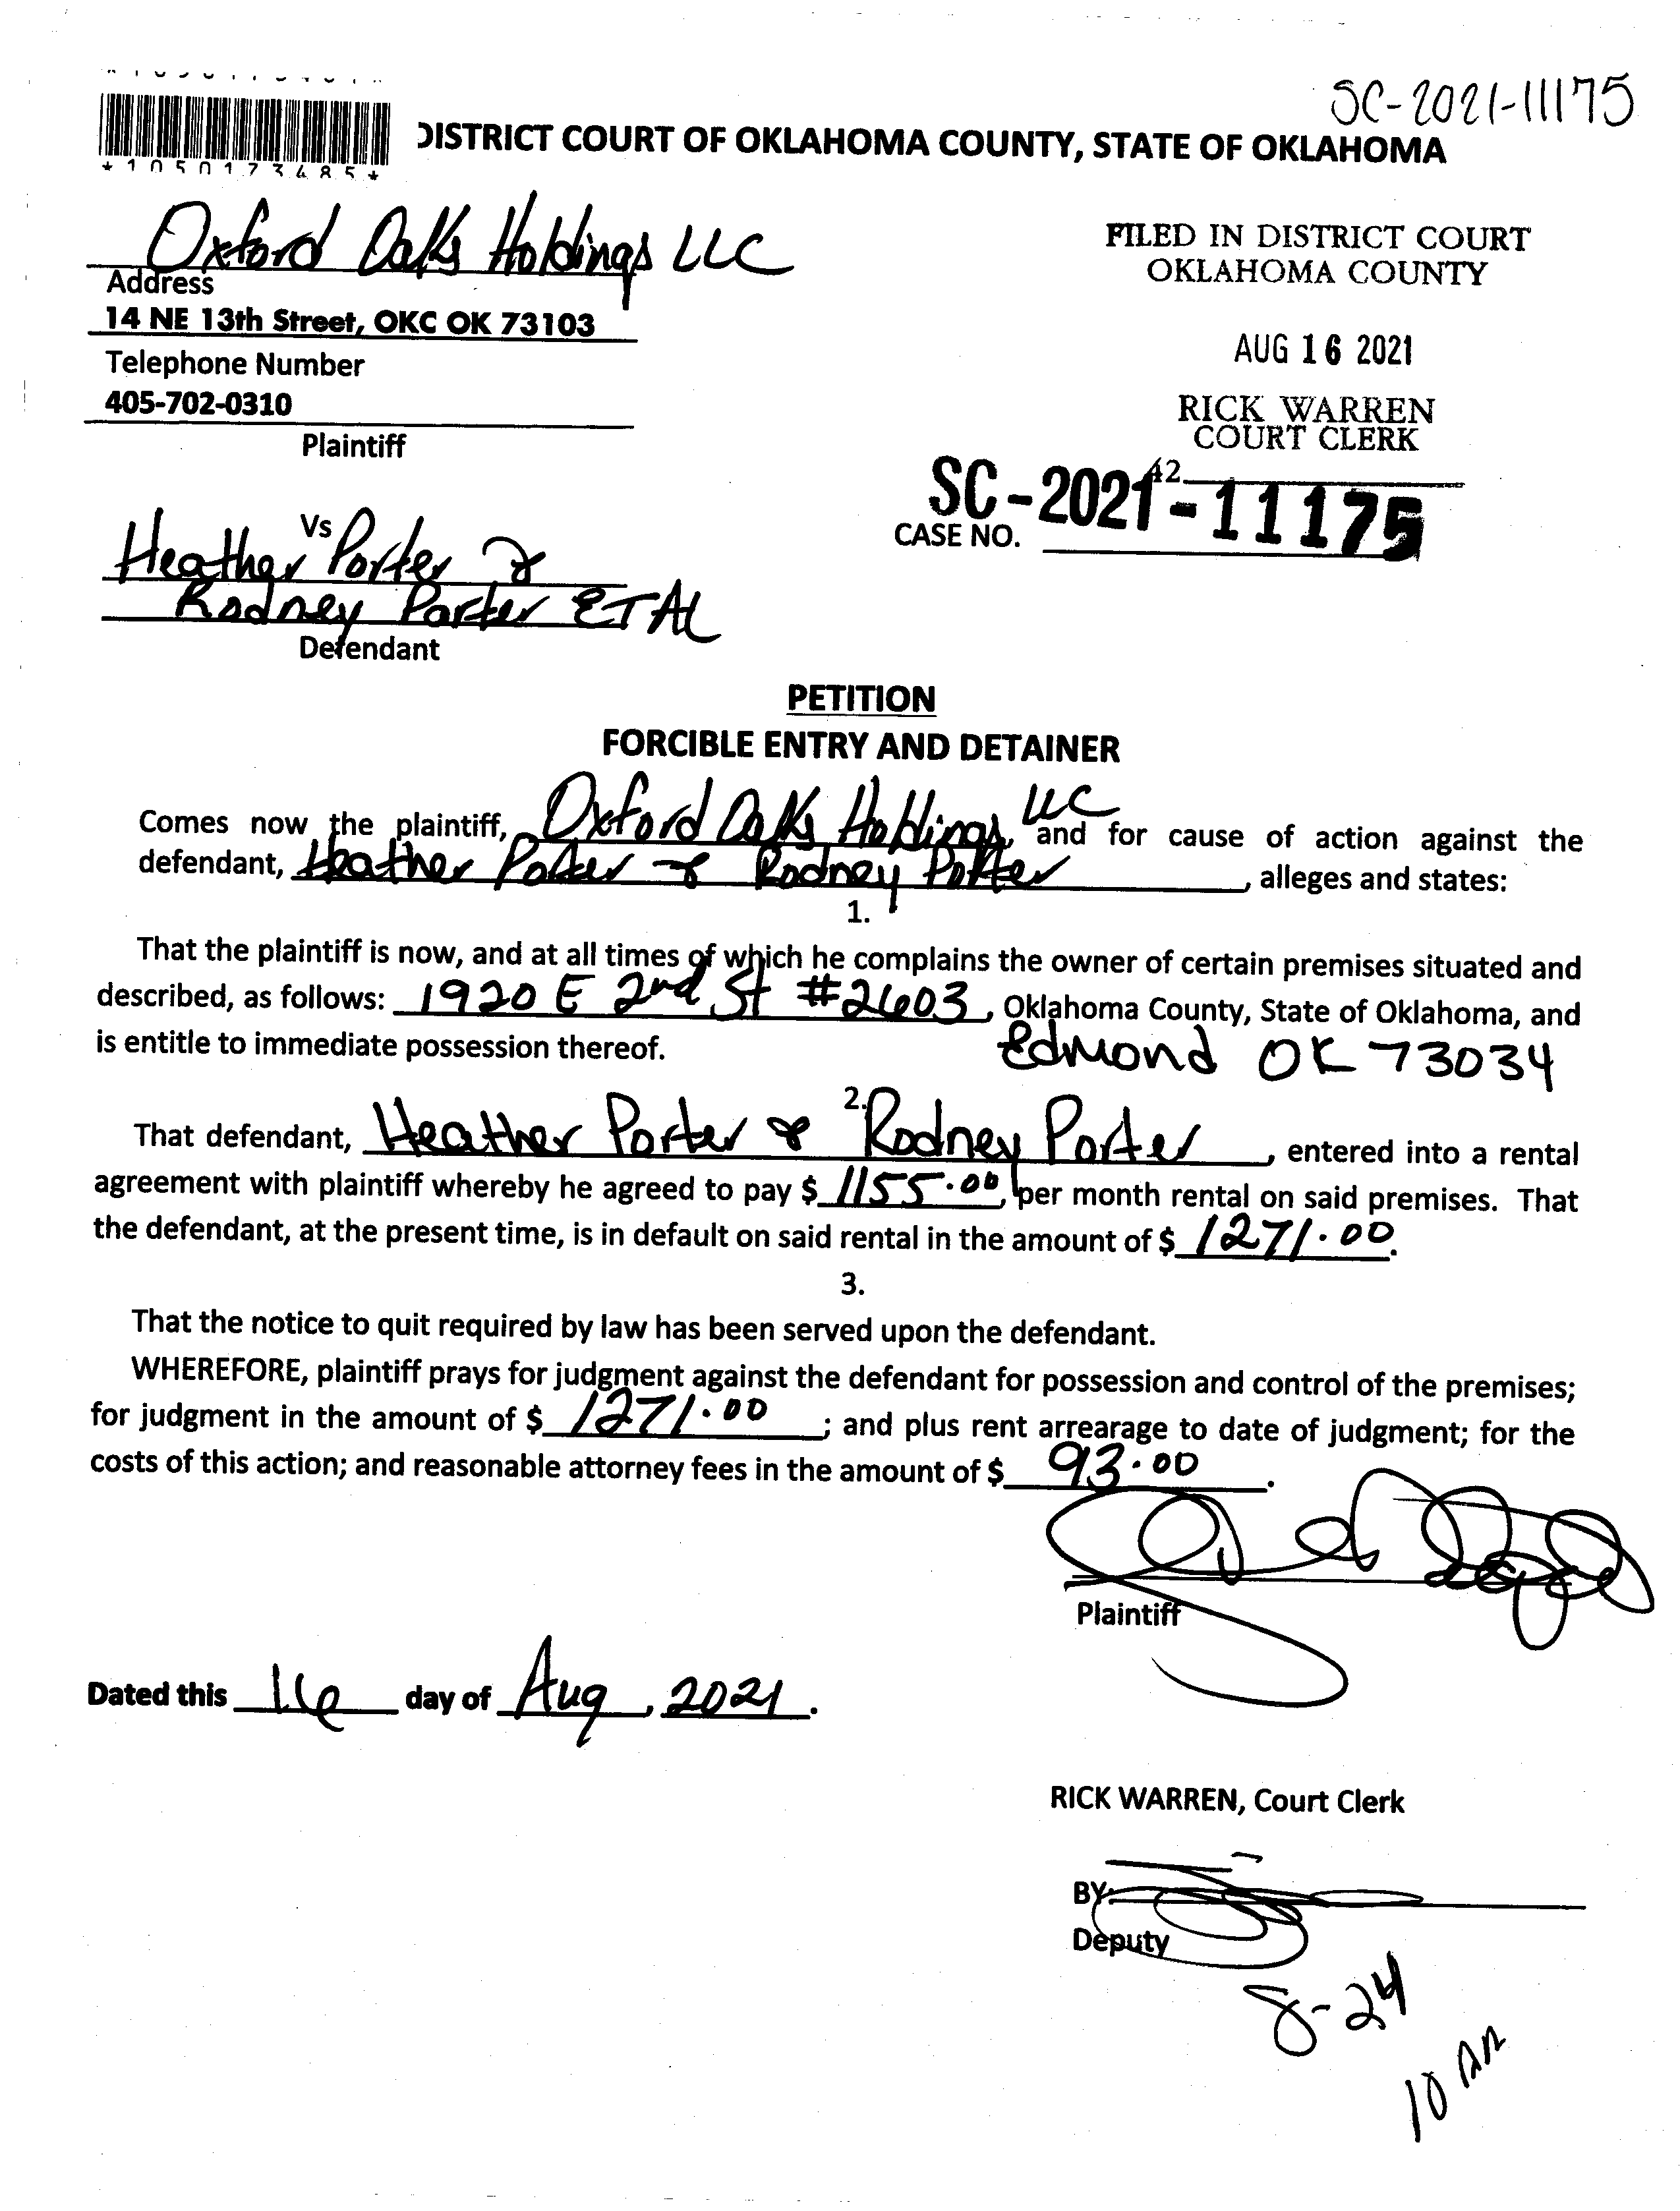 SC-2021-11175
DISTRICT COURT OF OKLAHOMA COUNTY, STATE OF OKLAHOMA
*1050173485*
Oxford Oaks Holdings LLC
Address
14 NE 13th Street, OKC OK 73103
Telephone Number
405-702-0310
Plaintiff
FILED IN DISTRICT COURT
OKLAHOMA COUNTY
AUG 16 2021
RICK WARREN
COURT CLERK
42
SC-2021-11175
CASE NO.
Vs
Heather Porter &
Rodney Porter ETAL
Defendant
PETITION
FORCIBLE ENTRY AND DETAINER
Comes now the plaintiff, Oxford Oaks Holdings, LLC and for cause of action against the
defendant, Heather Porter & Rodney Porter, alleges and states:
1.
That the plaintiff is now, and at all times of which he complains the owner of certain premises situated and
described, as follows: 1920 E 2nd St #2603, Oklahoma County, State of Oklahoma, and
is entitle to immediate possession thereof. Edmond OK 73034
2.
That defendant, Heather Porter & Rodney Porter, entered into a rental
agreement with plaintiff whereby he agreed to pay $ 1155.00, per month rental on said premises. That
the defendant, at the present time, is in default on said rental in the amount of $ 1271.00.
3.
That the notice to quit required by law has been served upon the defendant.
WHEREFORE, plaintiff prays for judgment against the defendant for possession and control of the premises;
for judgment in the amount of $ 1271.00; and plus rent arrearage to date of judgment; for the
costs of this action; and reasonable attorney fees in the amount of $ 93.00.
Plaintiff
Dated this 16 day of Aug, 2021.
RICK WARREN, Court Clerk
BY:
Deputy
8-24
10 am